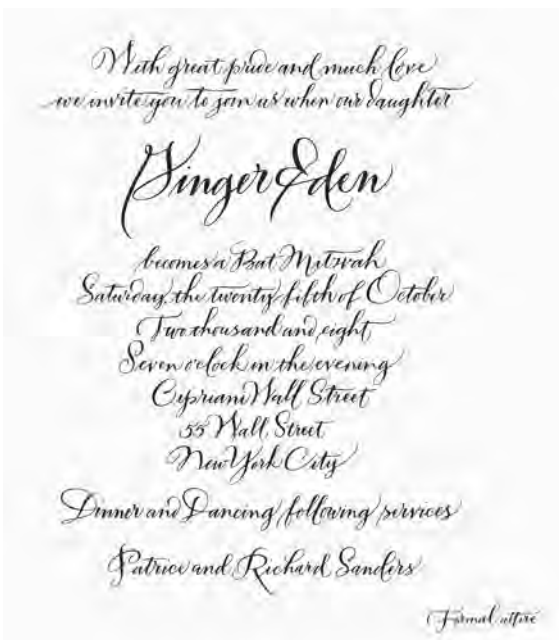 With great pride and much love
we invite you to join us when our daughter
Ginger Eden
becomes a Bat Mitzvah
Saturday, the twenty fifth of October
Two thousand and eight
Seven o'clock in the evening
Cipriani Wall Street
55 Wall Street
New York City
Dinner and Dancing following services
Patrice and Richard Sanders
Formal attire